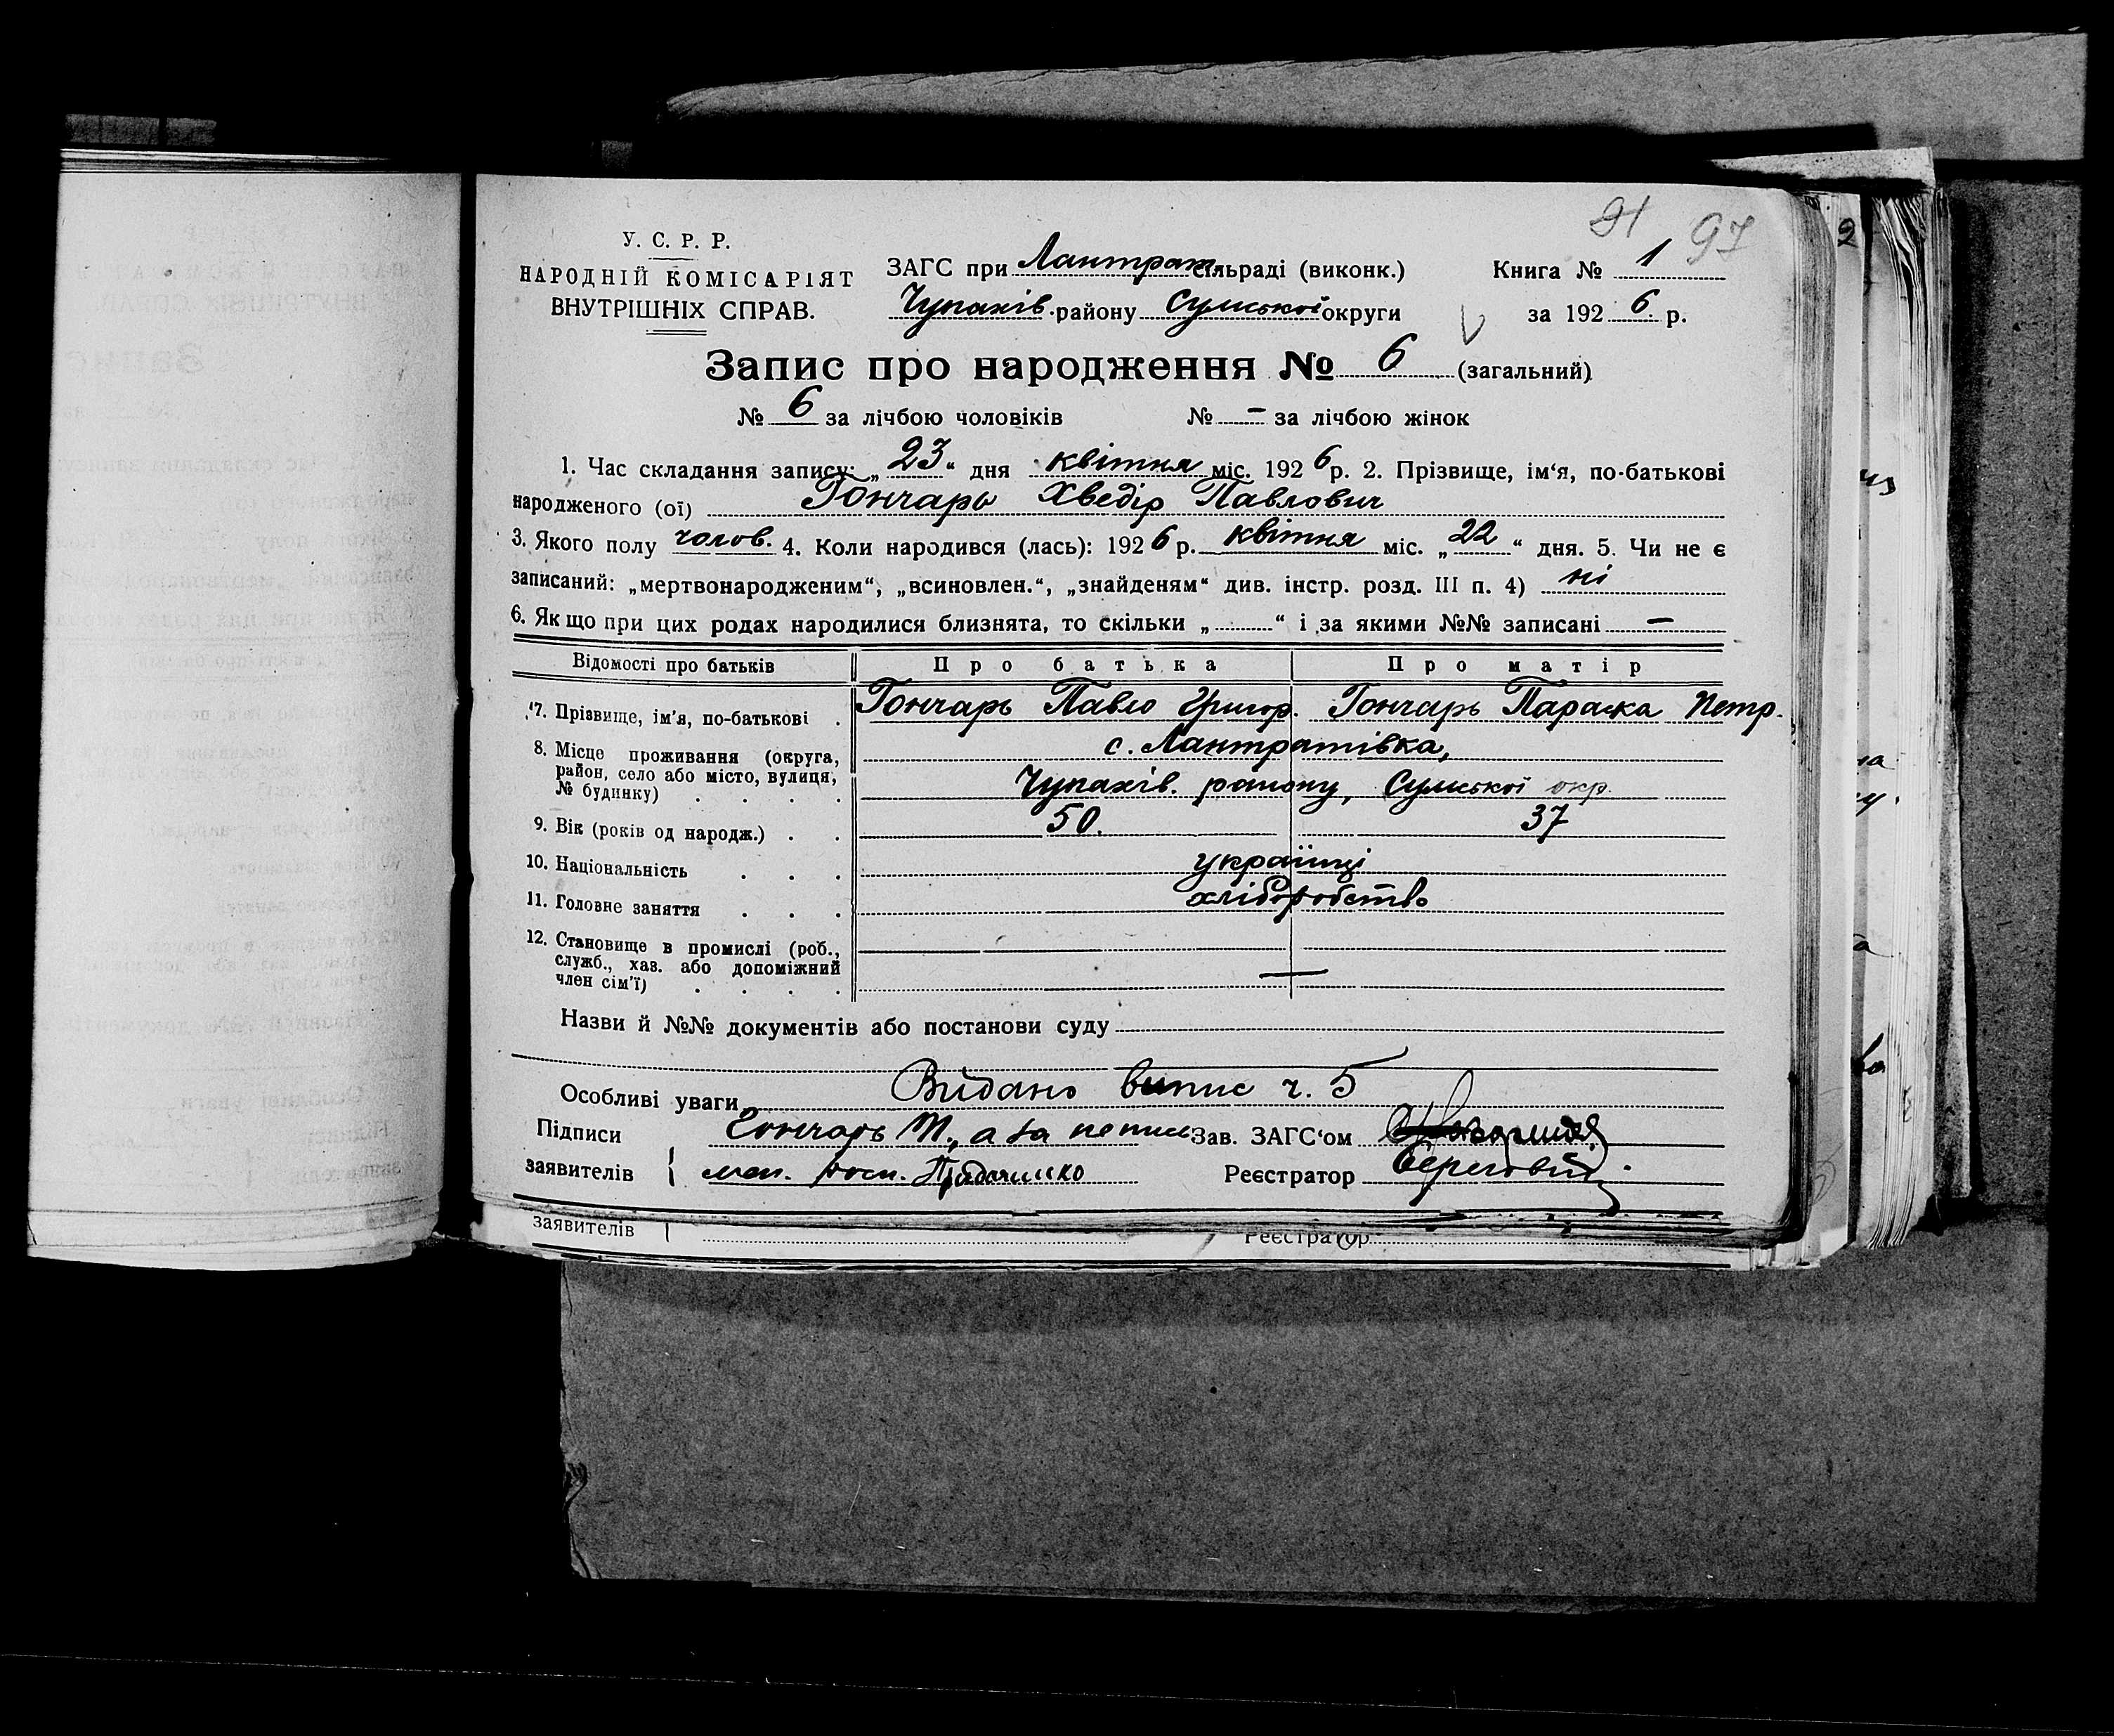 91 97
У. С. Р. Р.
НАРОДНІЙ КОМІСАРІЯТ
ВНУТРІШНІХ СПРАВ.
ЗАГС при Лантрат. сільраді (виконк.)
Чупахів. району Сумської округи
Книга № 1
за 1926 р.
Запис про народження № 6 (загальний)
№ 6 за лічбою чоловіків № – за лічбою жінок
1. Час складання запису: „23“ дня квітня міс. 1926 р. 2. Прізвище, ім‘я, по-батькові
народженого (ої) Гончарь Хведір Павлович
3. Якого полу чолов. 4. Коли народився (лась): 1926 р. квітня міс. „22“ дня. 5. Чи не є
записаний: „мертвонародженим“, „всиновлен.“, „знайденям“ див. інстр. розд. III п. 4) ні
6. Якщо при цих родах народилися близнята, то скільки „......“ і за якими №№ записані —
Відомості про батьків Про батька Про матір
7. Прізвище, ім'я, по-батькові . Гончарь Павло Григор. Гончарь Параска Петр.
8. Місце проживання (округа, с. Лантратівка,
район, село або місто, вулиця,
№ будинку) . . . . Чупахів. району, Сумської окр.
9. Вік (років од народж.) . . 50. 37
10. Національність . . . українці
11. Головне заняття . . . хліборобство
12. Становище в промислі (роб.,
служб., хаз. або допоміжний
член сім'ї) . . . . —
Назви й №№ документів або постанови суду
Особливі уваги Видано випис ч. 5
Підписи Гончарь П., а за непись Зав. ЗАГС‘ом
заявителів { Реєстратор Береговий
заявителів { Реєстратор